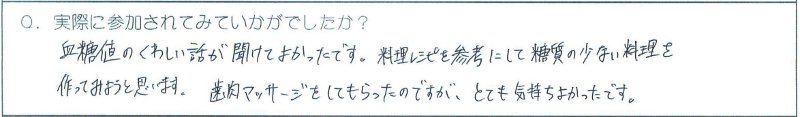 Q. 実際に参加されてみていかがでしたか？
血糖値のくわしい話が聞けてよかったです。料理レシピを参考にして糖質の少ない料理を
作ってみようと思います。 歯肉マッサージをしてもらったのですが、とても気持ちよかったです。